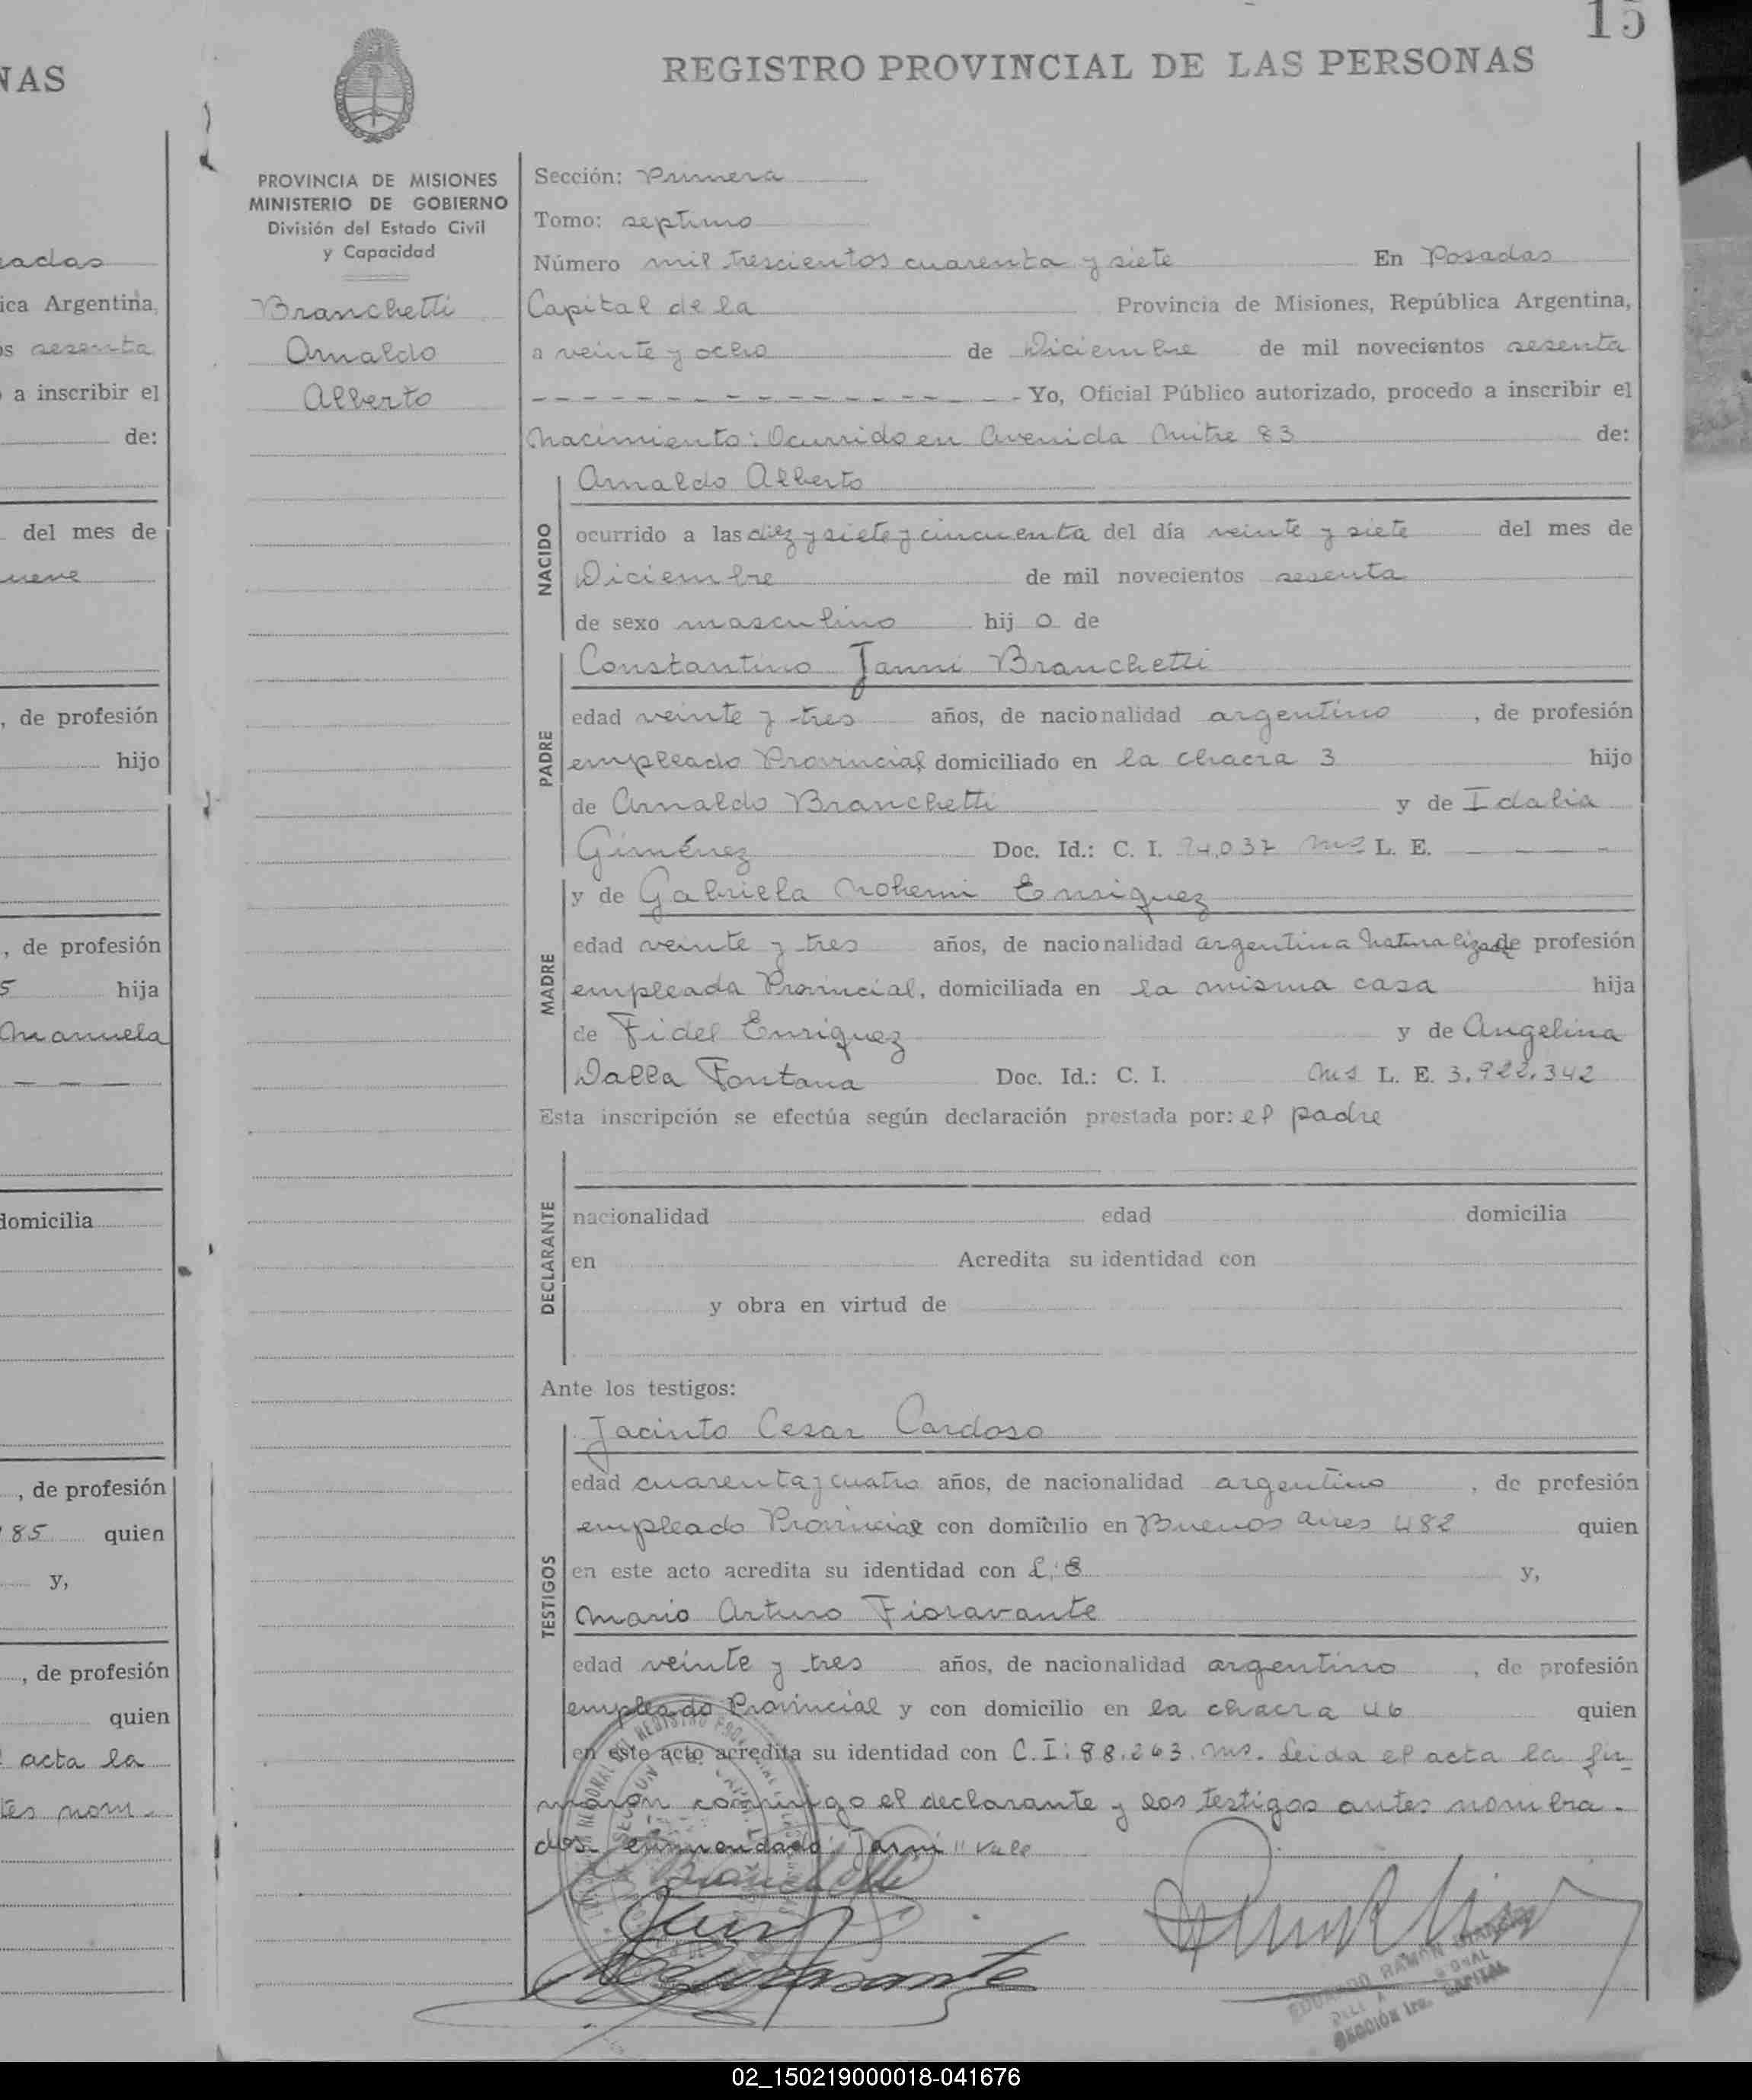 15
NAS
REGISTRO PROVINCIAL DE LAS PERSONAS
PROVINCIA DE MISIONES
MINISTERIO DE GOBIERNO
División del Estado Civil
y Capacidad
Branchetti
Arnaldo
Alberto
ica Argentina,
sesenta
a inscribir el
de:
del mes de
, de profesión
hijo
, de profesión
5 hija
Manuela
domicilia
, de profesión
85 quien
y,
, de profesión
quien
acta la
tes nom-
Sección: Primera
Tomo: septimo
Número mil trescientos cuarenta y siete En Posadas
Capital de la Provincia de Misiones, República Argentina,
a veinte y ocho de Diciembre de mil novecientos sesenta
- - - - - - - - - - - - - - - - Yo, Oficial Público autorizado, procedo a inscribir el
Nacimiento: Ocurrido en Avenida Mitre 83 de:
NACIDO
Arnaldo Alberto
ocurrido a las diez y siete y cincuenta del día veinte y siete del mes de
Diciembre de mil novecientos sesenta
de sexo masculino hij o de
PADRE
Constantino Janni Branchetti
edad veinte y tres años, de nacionalidad argentino , de profesión
empleado Provincial domiciliado en la chacra 3 hijo
de Arnaldo Branchetti y de Idalia
Giménez Doc. Id.: C. I. 94,037 Mns L. E. - - -
MADRE
y de Gabriela Nohemi Enriquez
edad veinte y tres años, de nacionalidad argentina naturalizada de profesión
empleada Provincial, domiciliada en la misma casa hija
de Fidel Enriquez y de Angelina
Dalla Fontana Doc. Id.: C. I. Mns L. E. 3.922.342
Esta inscripción se efectúa según declaración prestada por: el padre
DECLARANTE
nacionalidad edad domicilia
en Acredita su identidad con
y obra en virtud de
Ante los testigos:
TESTIGOS
Jacinto Cesar Cardoso
edad cuarenta y cuatro años, de nacionalidad argentino , de profesión
empleado Provincial con domicilio en Buenos Aires 482 quien
en este acto acredita su identidad con y,
Mario Arturo Fioravante
edad veinte y tres años, de nacionalidad argentino , de profesión
empleado Provincial y con domicilio en la chacra 46 quien
en este acto acredita su identidad con C.I: 88.263. Mns. Leida el acta la fir-
maron conmigo el declarante y los testigos antes nombra-
dos. enmendado: Janni" vale
SECCIÓN 1ra. CAPITAL
02_150219000018-041676